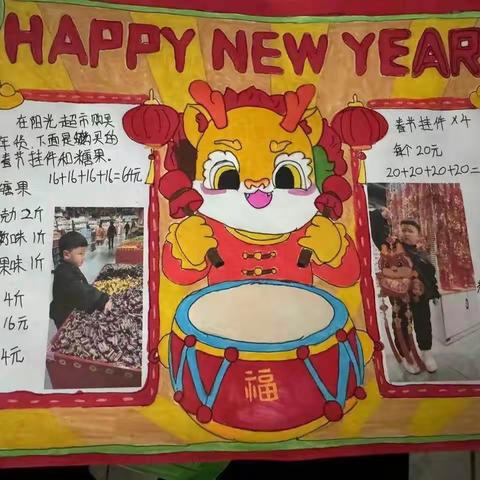 HAPPY NEW YEAR
在阳光超市购买
年货。下面是购买的
春节挂件和糖果。
16+16+16+16=64元
糖果
2斤
味1斤
果味1斤
4斤
16元
4元
春节挂件×4
每个20元
20+20+20+20=
福